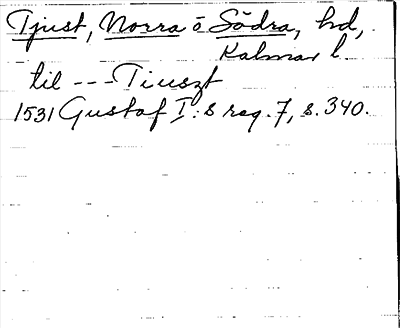 Tjust, Norra o Södra, hd,
Kalmar l.
til --- Tiuszt
1531 Gustaf I:s reg. 7, s. 340.